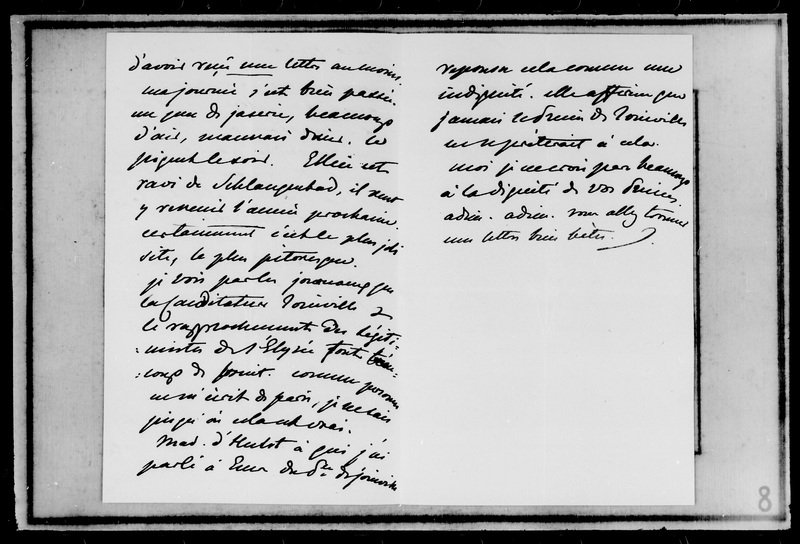 d'avoir reçu une lettre au moins.
ma journée s'est bien passée.
un peu de jaserie, beaucoup
d'air, mauvais diner. le
piquet le soir. Ellice est
ravi de Schlangenbad, il veut
y revenir l'année prochaine.
certainement c'est le plus joli
site, le plus pittoresque.
je vois par les journaux que
la Candidature Joinville &
le rapprochement des légiti-
-mistes de l'Elysée font beau-
-coup de bruit. comme personne
ne m'écrit de paris, je ne sais
jusqu'où cela est vrai.
Mad. d'Hulst à qui j'ai
parlé à Ems du Pce de Joinville
repousse cela comme une
indignité. elle affirme que
jamais le Prince de Joinville
ne se prêterait à cela.
moi je ne crois pas beaucoup
à la dignité de vos Princes.
adieu. adieu. vous allez trouver
ma lettre bien bête.
8